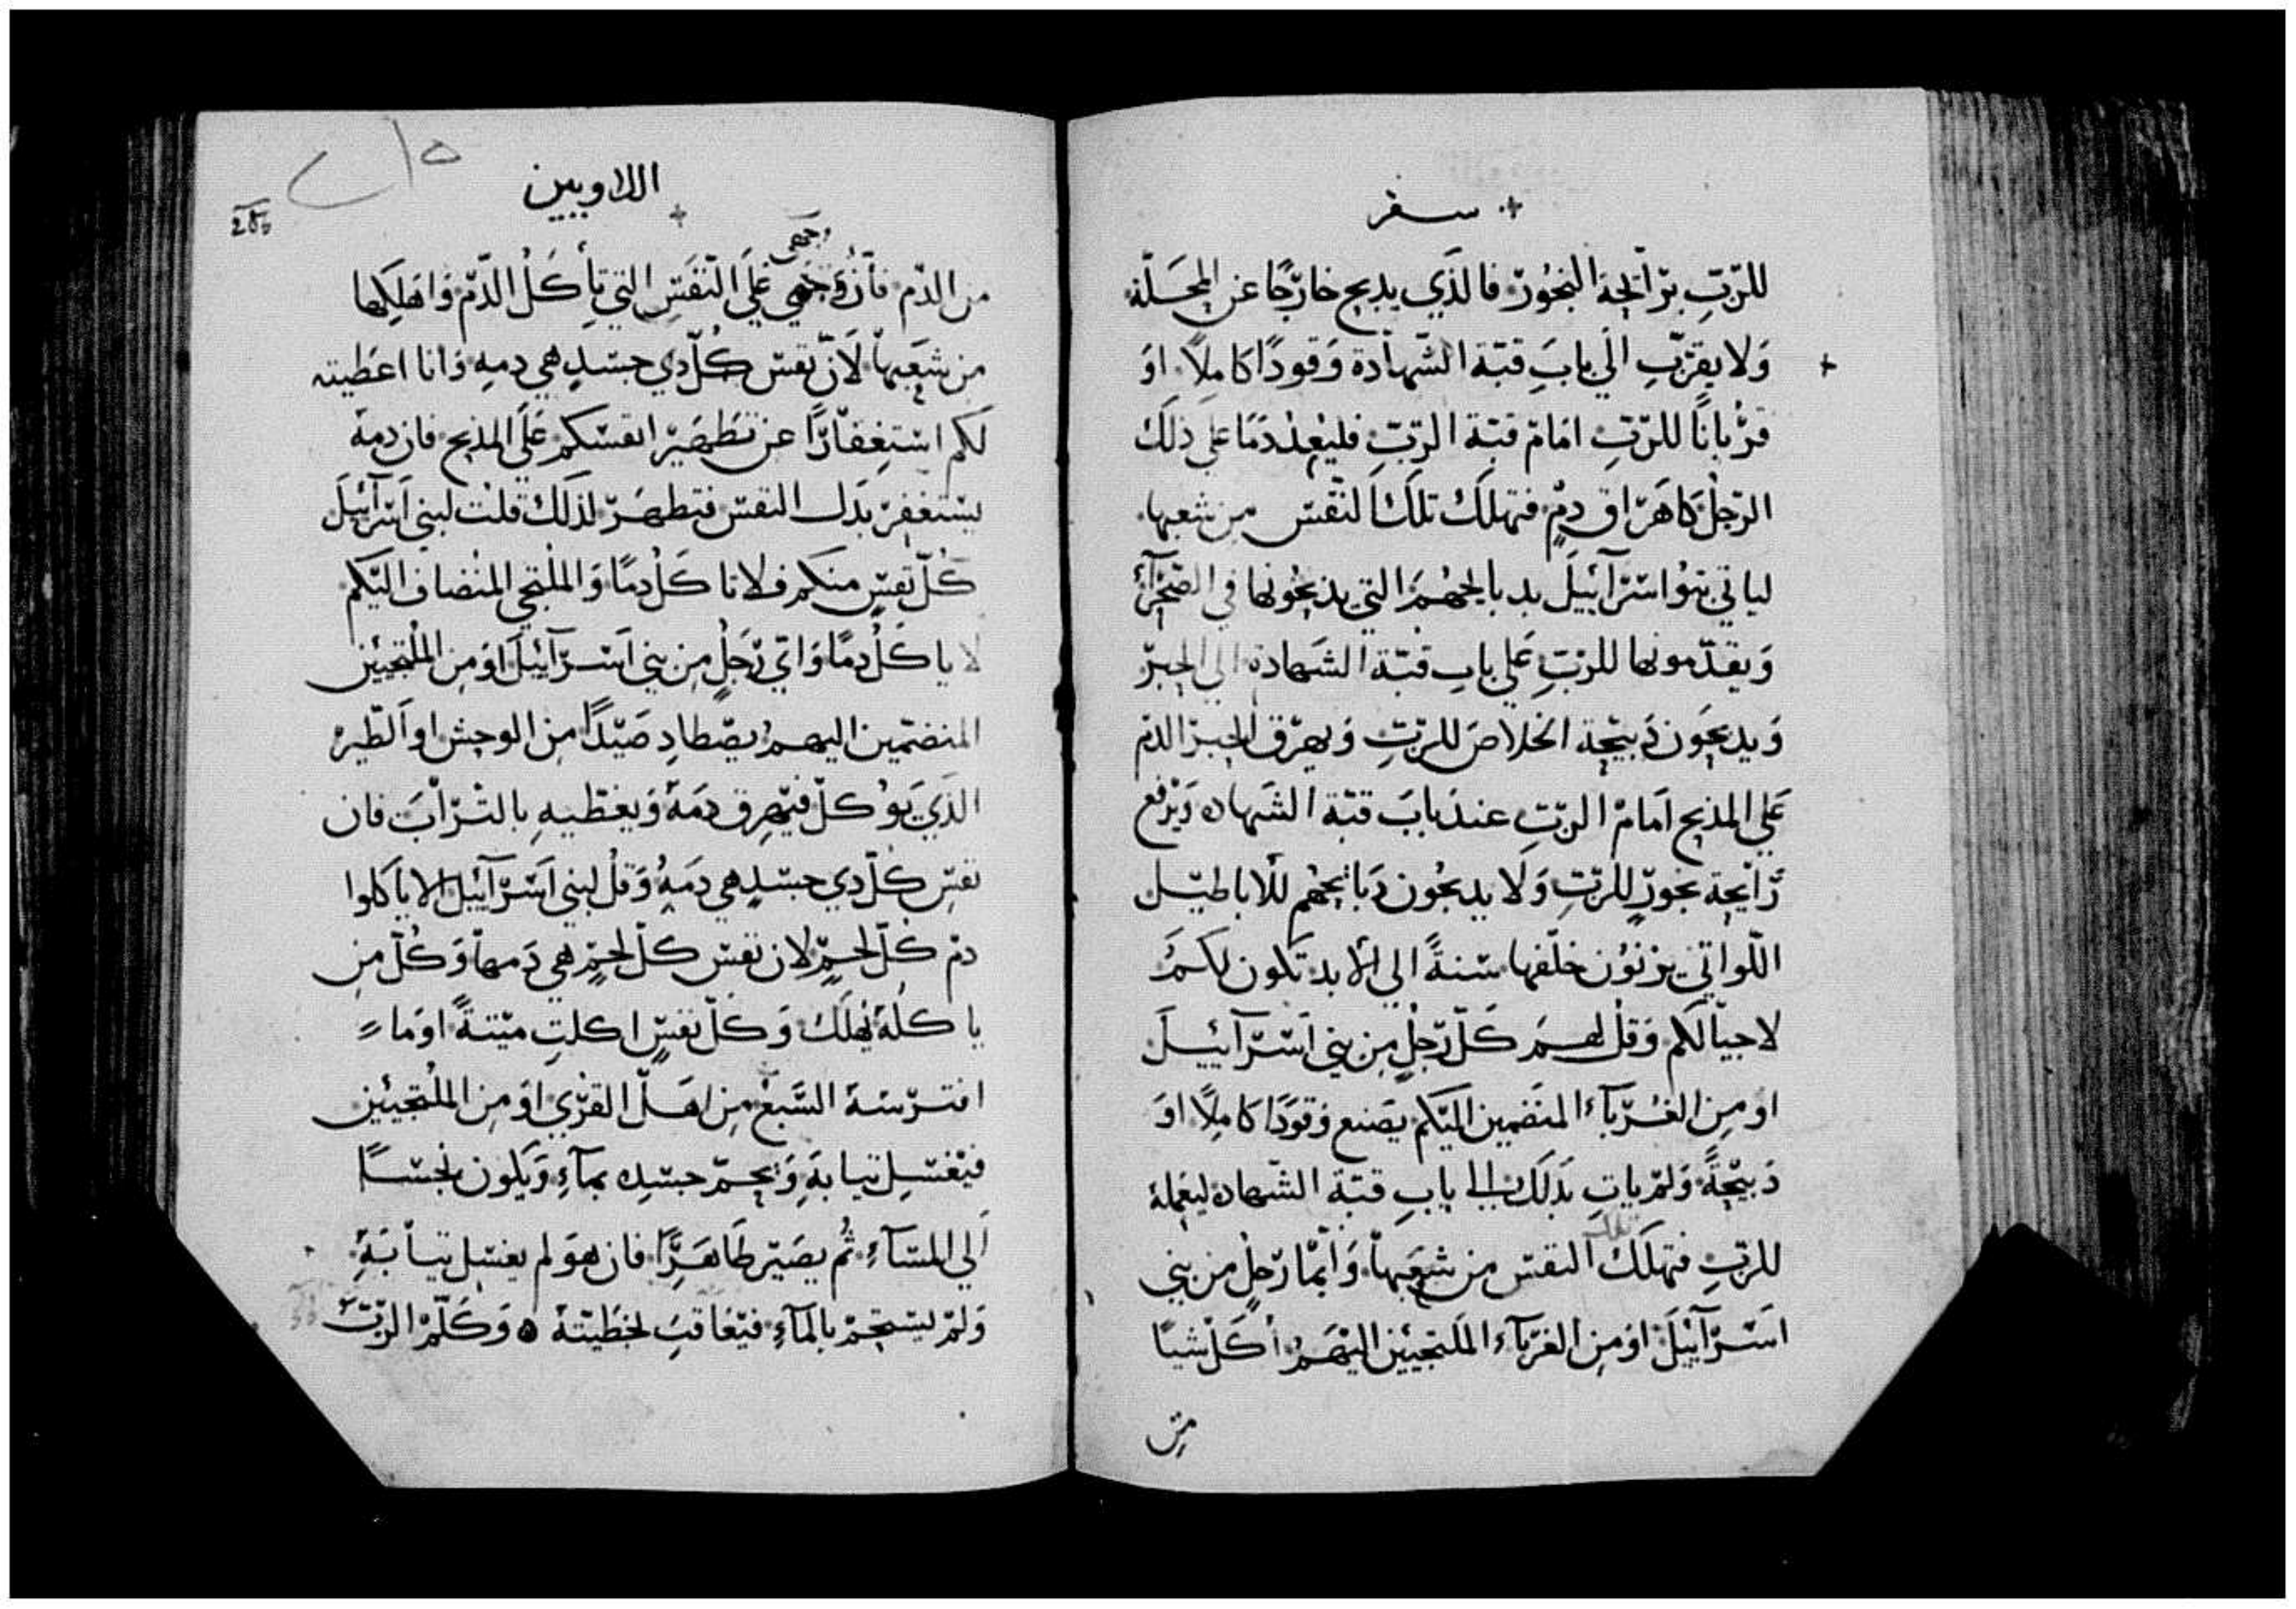 سفر
للرّبِّ برّائحة البخُور فالذي يدبح خارجًا عن المحلّة
وَلا يقرّبِ الي بابَ قبّة الشّهادة وَقودًا كاملاً اوَ
قرْبانًا للرّبِّ امَامَ قبّة الربّ فليُعدْ دَمًا علي ذلكَ
الرّجل كاهَرَاق دمٍ فتهلكَ تلكَ النّفس من شعبها
لياتي بنوُا اسْرَآئيلَ بدبايحهُم التي يدبحُونها في الصّحرآء
وَيقدّمونها للربِّ عَلي باب قبّة الشهادة الي الحبرّ
وَيدبحَون دَبيحَة الخلاصَ للرّبِّ وَيهرْق الحبرْ الدّم
عَلي المذبح امَامْ الربّ عند بابَ قبّة الشهاده وَيرْفع
رَّايحة بخورٍ للرّبِّ وَلا يدبحُون دَبايحُهم للاباطيّل
اللّواتي يزْنوُن خلّفها سَنةً الي الابد تكون لكمُ
لاجيالكم وَقلْ لهمَ كَلّ رّجُلٍ مِن بني اَسْرّآئيْلَ
او مِن الغُرّبآء المنضمين اليّكم يصَنع وَقوَدًا كَامِلًا اوَ
دَبيحَةً وَلمْ ياتِ بَدلكَ الي بابِ قبّة الشّهاده ليعَملهُ
للرّبِّ فتهلَكَ تلك النفسَ من شعَبهاْ وَايّمّا رّجلٍ من بني
اسَرّآئيْلَ اوَ من الغرّبآء الملتجيّين اليْهَمُ اكَلَ شيًا
من
اللاويين
وجهي
من الدّم فاَنْ وَجهي عَلَي النّفسِ التي تأكلُ الدّم وَاهلكها
من شعَبهاْ لاَنّ نفس كُلّ دي جسَدٍ هي دمهِ وَانا اعَطيته
لكم اسْتغفارًا عن تطَهيرْ انفسكم عَلَي المدبح فان دمهُ
يسْتغفرْ بدَل النفسَ فتطهرّ لذلكَ قلت لبني اَسْرآئيلَ
كُلّ نفسٍ منكم فلا تاكَلُ دمًا وَالملتجي المنضاف اليّكم
لا ياكلُ دمًا وَايّ رّجلٍ من بني اسَرّآئيلَ اوَ من الملتجيّين
المنضمّين اليهمُ يصّطادِ صَيّدًا من الوحش او الطّير
الذي يوُكلّ فيُهرِق دمَهُ وَيغطّيهِ بالترّابَ فان
نفسِ كُلّ دي جسّدٍ هي دمَهُ وَقلْ لبني اسَرّآئيل لا ياَكلوا
دمْ كُلّ لحمٍ لان نفسَ كلّ لحمٍ هي دَمهاْ وَكُلّ من
ياكلهُ يُهلكَ وَكلّ نفسٍ اكلتِ ميّتةً اوَ ما
افترّسَهُ السَّبعْ مِن اهَلّ القرّي اوَ مِن الملتجيّين
فيَغسّل تيابهِ وَيحمّ جسَده بمآءِ وَيكون نجسّاً
اَلي المسَآءِ ثُم يصَيّر طَاهَرًا فان هوَ لم يغسّل تياَبهِ
وَلمْ يستحمْ بالمآءِ فيُعَاقبَ بخطيّتهُ ۵ وَكَلّمْ الربّ